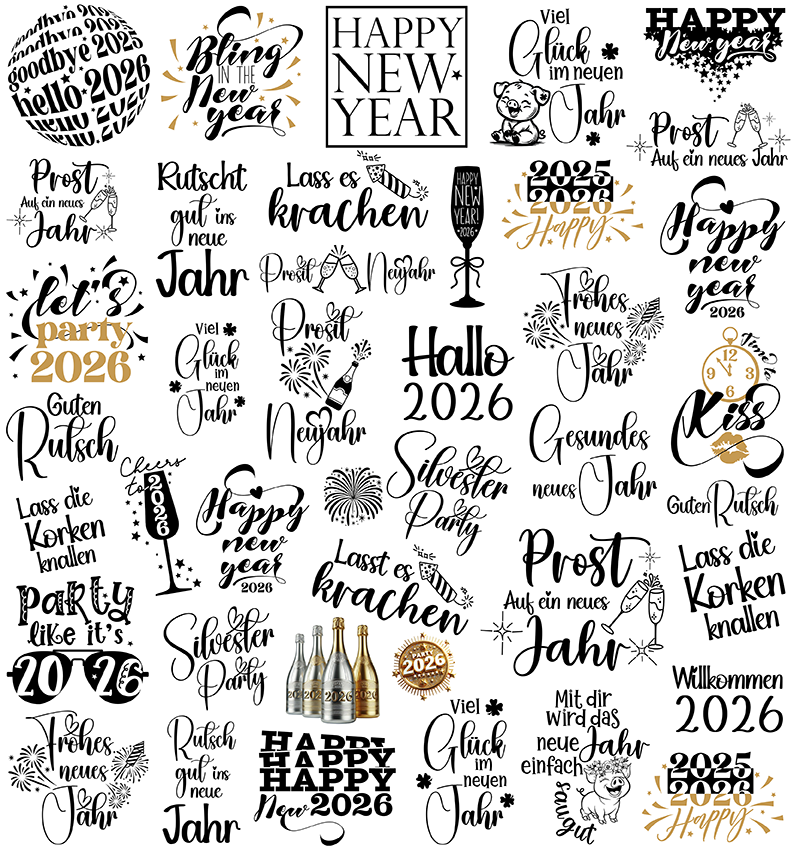 goodbye 2025
goodbye 2025
goodbye 2025
hello 2026
hello 2026
hello 2026
Bling
IN THE
New
year
HAPPY
NEW
YEAR
Viel
Glück
im neuen
Jahr
HAPPY
New year
Prost
Auf ein neues Jahr
Prost
Auf ein neues
Jahr
Rutscht
gut ins
neue
Jahr
Lass es
krachen
Prosit Neujahr
HAPPY
NEW
YEAR!
2026
2025
2026
Happy
Happy
new
year
2026
let's
party
2026
Viel
Glück
im
neuen
Jahr
Prosit
Neujahr
Hallo
2026
Frohes
neues
Jahr
Time to
12
9 3
6
Kiss
Guten
Rutsch
Gesundes
neues Jahr
Silvester
Party
Guten Rutsch
Cheers
to
2026
Lass die
Korken
knallen
Happy
new
year
2026
Lasst es
krachen
Prost
Auf ein neues
Jahr
Lass die
Korken
knallen
PARTY
like it's
2026
Silvester
Party
2026
PARTY
2026
Willkommen
2026
Frohes
neues
Jahr
Rutsch
gut ins
neue
Jahr
HAPPY
HAPPY
HAPPY
New 2026
Viel
Glück
im
neuen
Jahr
Mit dir
wird das
neue Jahr
einfach
saugut
2025
2026
Happy